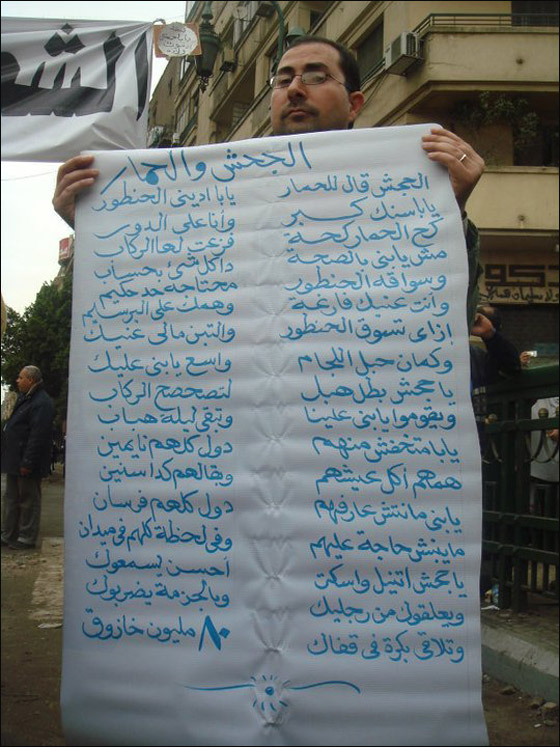 الجحش والحمار
الجحش قال للحمار يابا اديني الحنطور
يابا سنك كبر وأنا على الدور
كح الحمار كحة فزعت لها الركاب
مش يابني بالصحة دا كل شئ بحساب
وسواقة الحنطور محتاجه حد حكيم
وأنت عنيك فارغة وهمك على البرسيم
إزاى تسوق الحنطور والتبن مالى عنيك
وكمان حبل اللجام واسع يابنى عليك
يا جحش بطل هبل لتصحصح الركاب
ويقوموا يابنى علينا وتبقى ليلة هباب
يابا متخفش منهم دول كلهم نايمين
هماهم أكل عيشهم وبقالهم كدا سنين
يابنى مانتش عارفهم دول كلهم فرسان
مايبنش حاجة عليهم وفى لحظة كلهم فى ميدان
يا جحش اتنيل واسكت أحسن يسمعوك
ويعلقوك من رجليك وبالجزمة يضربوك
وتلاقى بكرة فى قفاك ٨٠ مليون خازوق